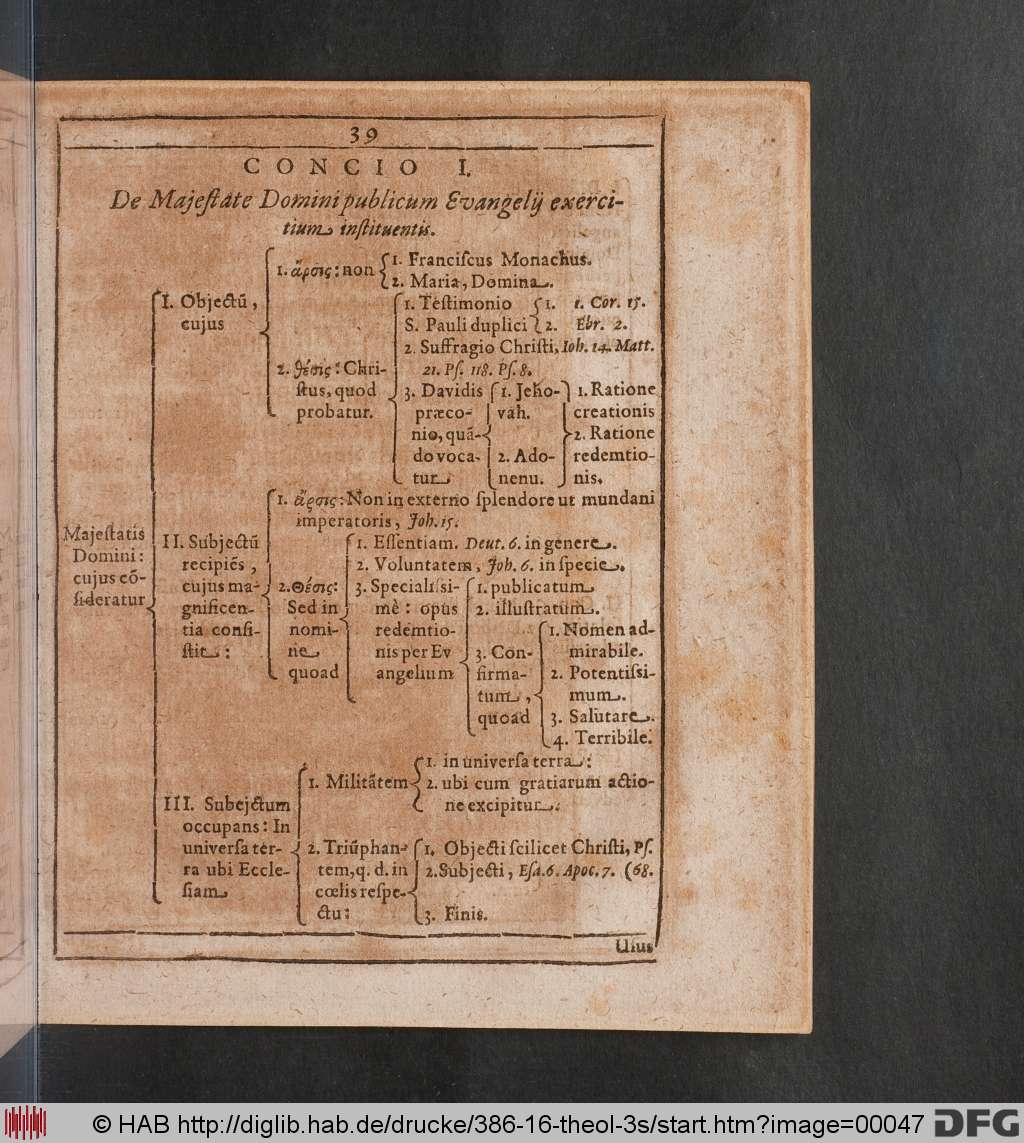 39
CONCIO I.
De Majeſtate Domini publicum Evangelij exerci-
tium inſtituentis.
Majeſtatis
Domini:
cujus cõ-
ſideratur
I. Objectũ,
cujus
1. ἄρσις: non
1. Franciſcus Monachus.
2. Maria, Domina.
2. θέσις: Chri-
ſtus, quod
probatur.
1. Teſtimonio
S. Pauli duplici
1. 1. Cor. 15.
2. Ebr. 2.
2. Suffragio Chriſti, Ioh. 14. Matt.
21. Pſ. 118. Pſ. 8.
3. Davidis
præco-
nio, quã-
do voca-
tur
1. Jeho-
vah.
2. Ado-
nenu.
1. Ratione
creationis
2. Ratione
redemtio-
nis.
II. Subjectũ
recipiẽs,
cujus ma-
gnificen-
tia conſi-
ſtit:
1. ἄρσις: Non in externo ſplendore ut mundani
imperatoris, Joh. 15.
2. Θέσις:
Sed in
nomi-
ne
quoad
1. Eſſentiam. Deut. 6. in genere.
2. Voluntatem, Joh. 6. in ſpecie.
3. Specialiſsi-
mè: opus
redemtio-
nis per Ev
angelium
1. publicatum
2. illuſtratum.
3. Con-
firma-
tum,
quoad
1. Nomen ad-
mirabile.
2. Potentiſsi-
mum.
3. Salutare.
4. Terribile.
III. Subejctum
occupans: In
univerſa ter-
ra ubi Eccle-
ſiam
1. Militãtem
1. in univerſa terra:
2. ubi cum gratiarum actio-
ne excipitur.
2. Triũphan-
tem, q. d. in
cœlis reſpe-
ctu:
1. Objecti ſcilicet Chriſti, Pſ.
2. Subjecti, Eſa. 6. Apoc. 7. (68.
3. Finis.
Uſus
© HAB http://diglib.hab.de/drucke/386-16-theol-3s/start.htm?image=00047
DFG